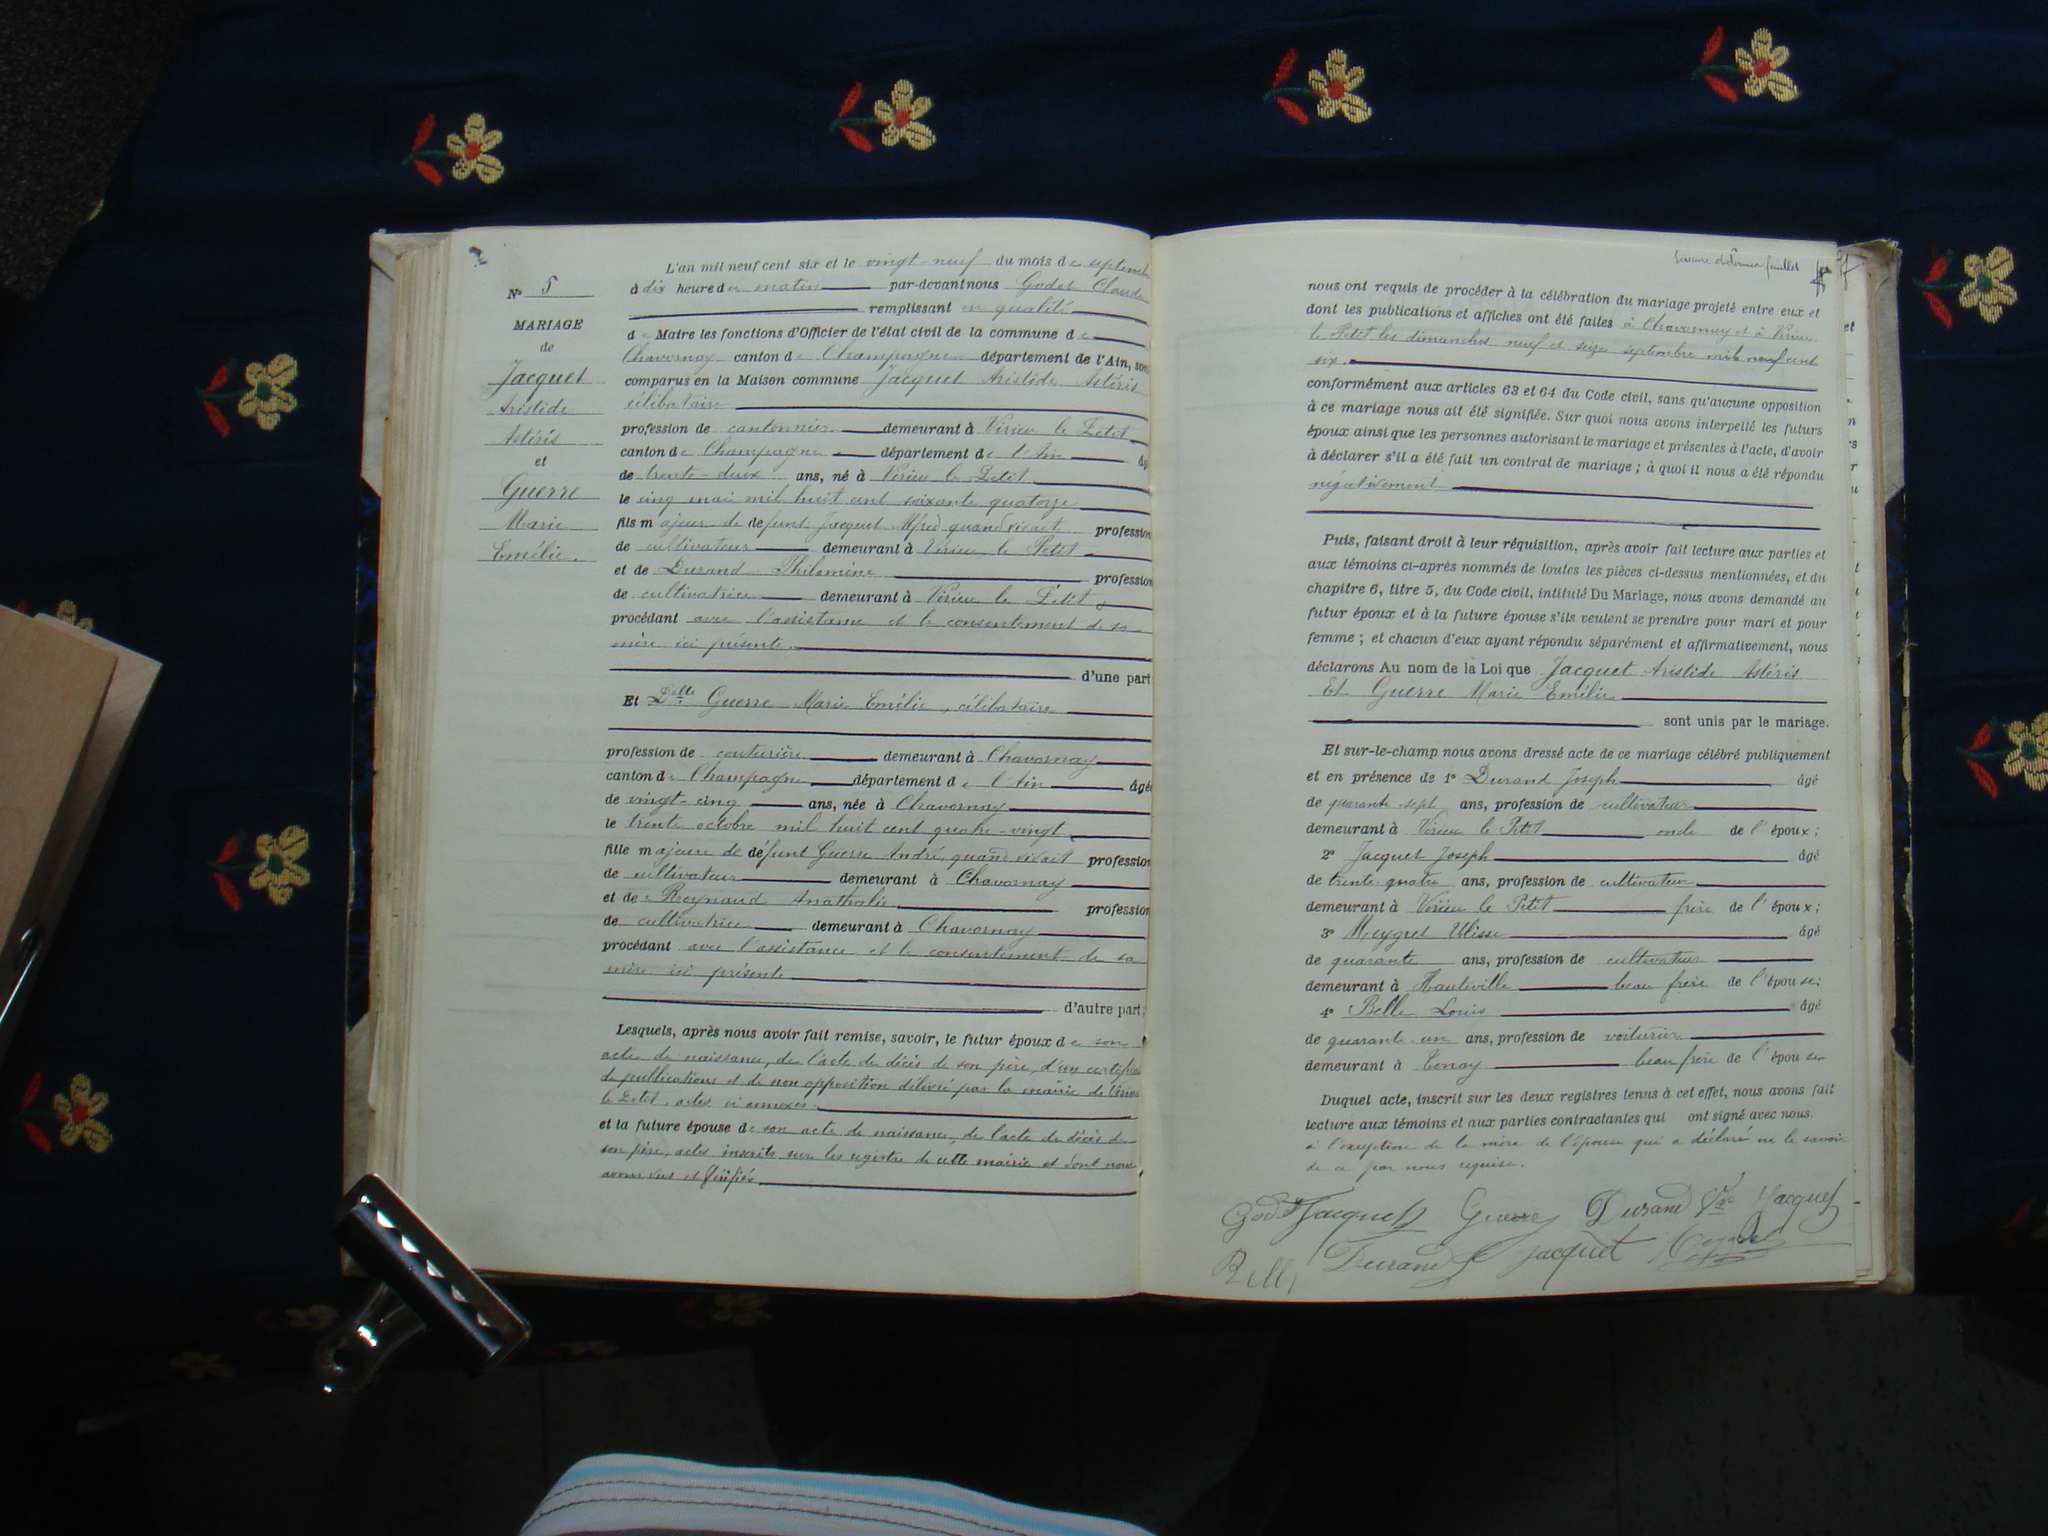 N° 5
MARIAGE
de
Jacquet
Aristide
Astéris
et
Guerre
Marie
Emélie.
L'an mil neuf cent six et le vingt-neuf du mois de septembre
à dix heure du matin par-devant nous Godet Claude
remplissant en qualité
de Maire les fonctions d'Officier de l'état civil de la commune de
Chavornay canton de Champagne département de l'Ain, son
comparus en la Maison commune Jacquet Aristide Astéris
célibataire
profession de cantonnier demeurant à Virieu le Petit
canton de Champagne département de l'Ain âg
de trente-deux ans, né à Virieu le Petit
le cinq mai mil huit cent soixante quatorze
fils majeur de défunt Jacquet Alfred quand vivait profession
de cultivateur demeurant à Virieu le Petit
et de Durand Philomène profession
de cultivatrice demeurant à Virieu le Petit
procédant avec l'assistance et le consentement de sa
mère ici présente.
d'une part
Et Delle Guerre Marie Emélie, célibataire
profession de couturière demeurant à Chavornay
canton de Champagne département de l'Ain âgé
de vingt-cinq ans, née à Chavornay
le trente octobre mil huit cent quatre-vingt
fille majeure de défunt Guerre André, quand vivait profession
de cultivateur demeurant à Chavornay
et de Reynaud Anathalie profession
de cultivatrice demeurant à Chavornay
procédant avec l'assistance et le consentement de sa
mère ici présente
d'autre part;
Lesquels, après nous avoir fait remise, savoir, le futur époux de son
acte de naissance, de l'acte de décès de son père, d'un certificat
de publications et de non opposition délivré par la mairie de Virieu
le Petit, actes ci annexés.
et la future épouse de son acte de naissance, de l'acte de décès de
son père, actes inscrits sur les registre de cette mairie et dont nous
avons vus et vérifiés
nous ont requis de procéder à la célébration du mariage projeté entre eux et
dont les publications et affiches ont été faites à Chavornay et à Virieu
le Petit les dimanches neuf et seize septembre mil neuf cent
six.
conformément aux articles 63 et 64 du Code civil, sans qu'aucune opposition
à ce mariage nous ait été signifiée. Sur quoi nous avons interpellé les futurs
époux ainsi que les personnes autorisant le mariage et présentes à l'acte, d'avoir
à déclarer s'il a été fait un contrat de mariage; à quoi il nous a été répondu
négativement
Puis, faisant droit à leur réquisition, après avoir fait lecture aux parties et
aux témoins ci-après nommés de toutes les pièces ci-dessus mentionnées, et du
chapitre 6, titre 5, du Code civil, intitulé Du Mariage, nous avons demandé au
futur époux et à la future épouse s'ils veulent se prendre pour mari et pour
femme; et chacun d'eux ayant répondu séparément et affirmativement, nous
déclarons Au nom de la Loi que Jacquet Aristide Astéris
Et Guerre Marie Emélie
sont unis par le mariage.
Et sur-le-champ nous avons dressé acte de ce mariage célébré publiquement
et en présence de 1° Durand Joseph âgé
de quarante sept ans, profession de cultivateur
demeurant à Virieu le Petit oncle de l'époux;
2° Jacquet Joseph âgé
de trente quatre ans, profession de cultivateur
demeurant à Virieu le Petit frère de l'époux;
3° Meygret Ulisse âgé
de quarante ans, profession de cultivateur
demeurant à Hauteville beau frère de l'épouse;
4° Belle Louis âgé
de quarante un ans, profession de voiturier
demeurant à Tenay beau frère de l'épouse
Duquel acte, inscrit sur les deux registres tenus à cet effet, nous avons fait
lecture aux témoins et aux parties contractantes qui ont signé avec nous.
à l'exception de la mère de l'épouse qui a déclaré ne le savoir
de ce par nous requise.
Godet Jacquet Guerre Durand Vve Jacquet
Belle Durand J Jacquet